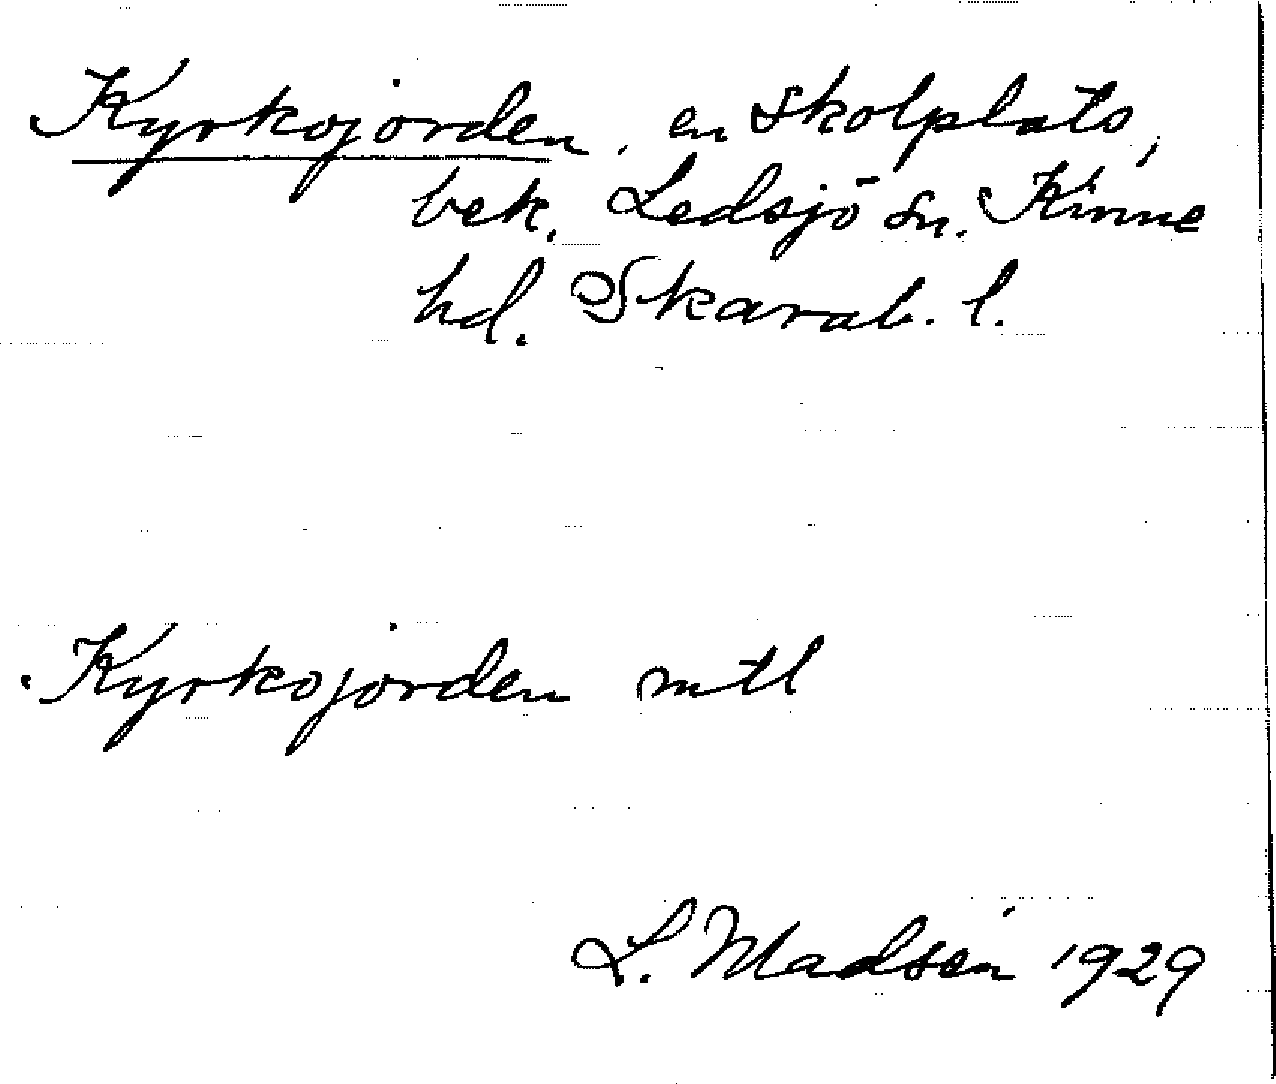 Kyrkojorden, en skolplats,
bek. Ledsjö sn. Kinne
hd. Skarab. l.
Kyrkojorden mtl
L. Madsén 1929